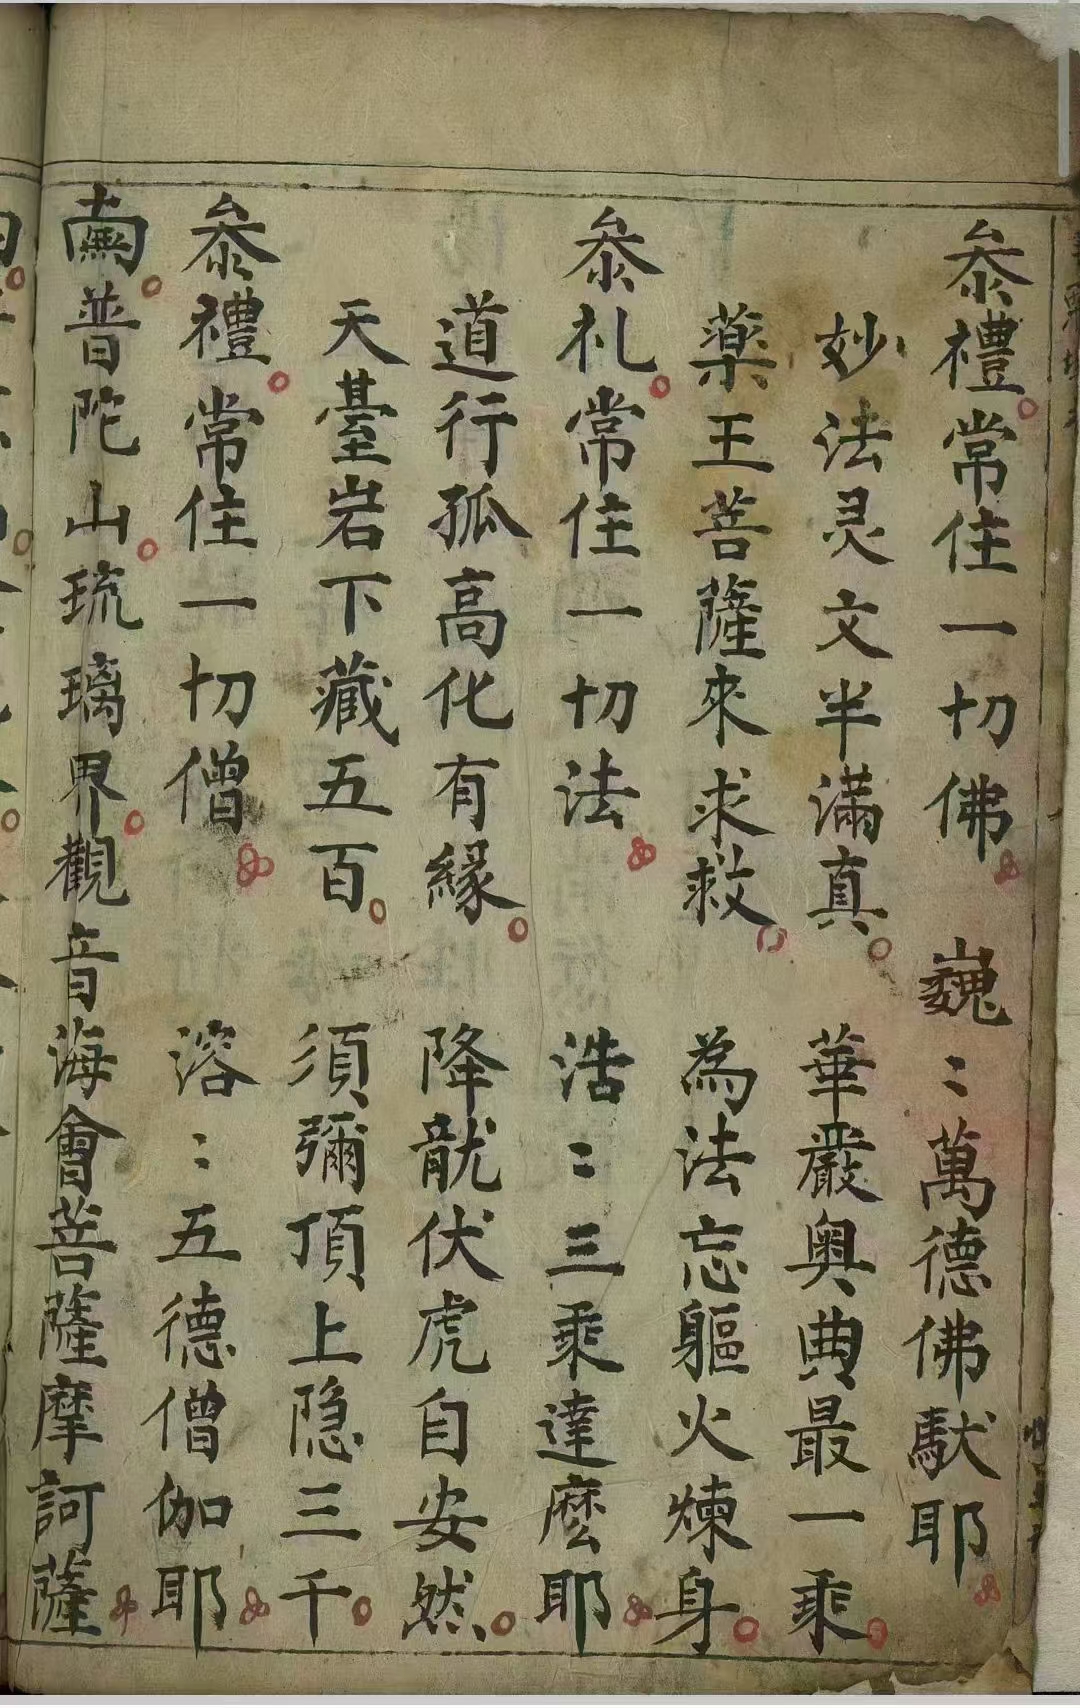 叅禮常住一切佛 巍〻萬德佛馱耶
妙法灵文半滿真 華嚴奧典最一乘
薬王菩薩來求救 為法忘軀火煉身
叅礼常住一切法 浩〻三乘達麼耶
道行孤高化有緣 降龍伏虎自安然
天臺岩下藏五百 須彌頂上隐三千
叅禮常住一切僧 溶〻五德僧伽耶
普陀山琉璃界觀音海會菩薩摩訶薩